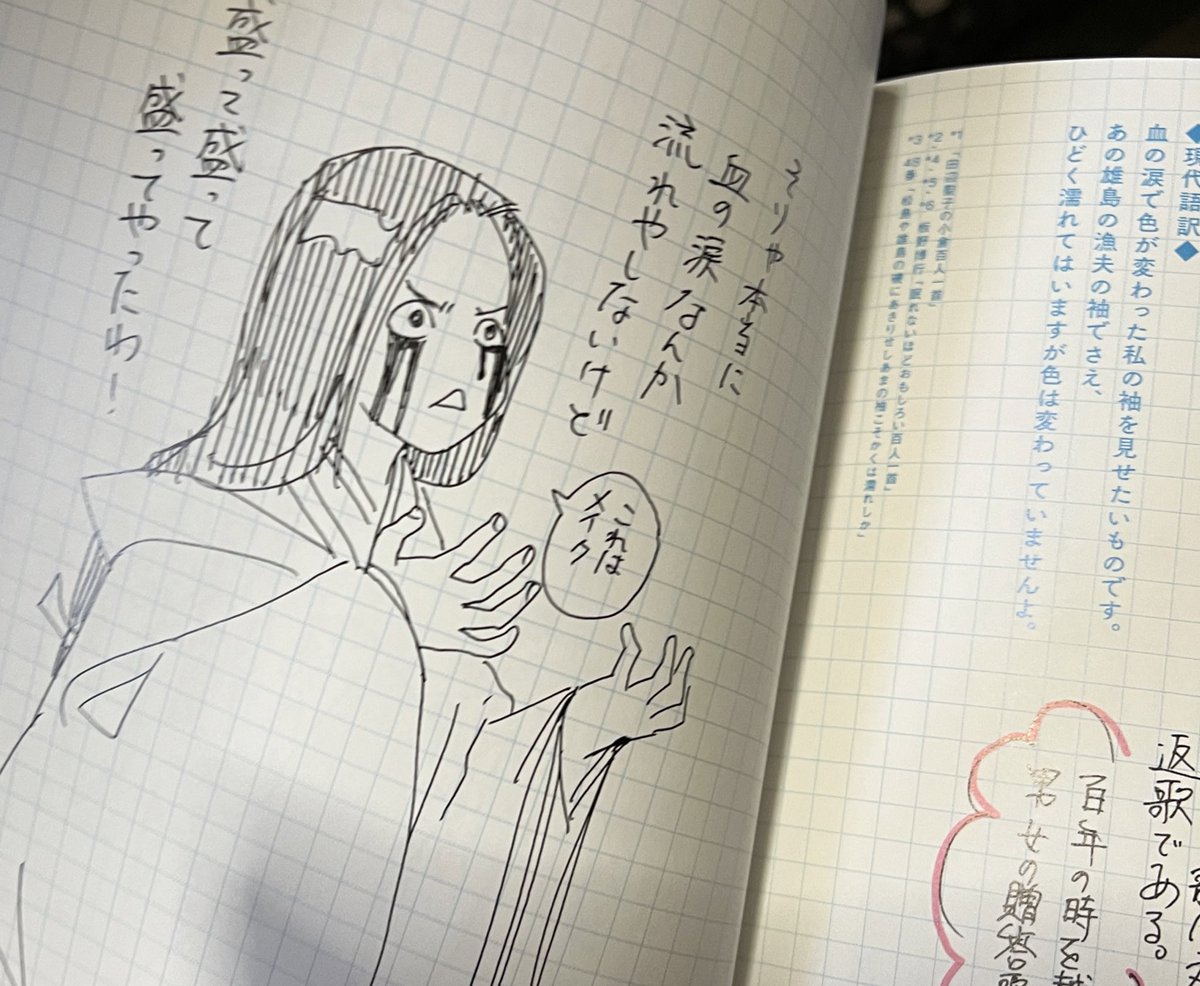 ◆現代語訳◆
血の涙で色が変わった私の袖を見せたいものです。
あの雄島の漁夫の袖でさえ、
ひどく濡れてはいますが色は変わっていませんよ。
*1 「田辺聖子の小倉百人一首」
*2・*4・*5・*6 板野博行「眠れないほどおもしろい百人一首」
*3 48番「松島や雄島の磯にあさりせしあまの袖こそかくは濡れしか」
返歌である。
百年の時を越
男女の贈答
そりゃ本当に
血の涙なんか
流れやしないけど
これは
メイク
盛って盛って
盛ってやったわ!